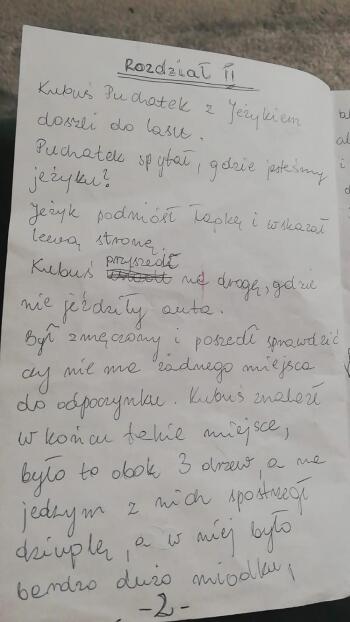 Rozdział II
Kubuś Puchatek z Jeżykiem
doszli do lasu.
Puchatek spytał, gdzie jesteśmy
jeżyku?
Jeżyk podniósł łapkę i wskazał
lewą stronę.
Kubuś przyszedł na drogę, gdzie
nie jeździły auta.
Był zmęczony i poszedł sprawdzić
czy nie ma żadnego miejsca
do odpoczynku. Kubuś znalazł
w końcu takie miejsce,
było to obok 3 drzew, a na
jednym z nich spostrzegł
dziuplę, a w niej było
bardzo dużo miodku,
-2-